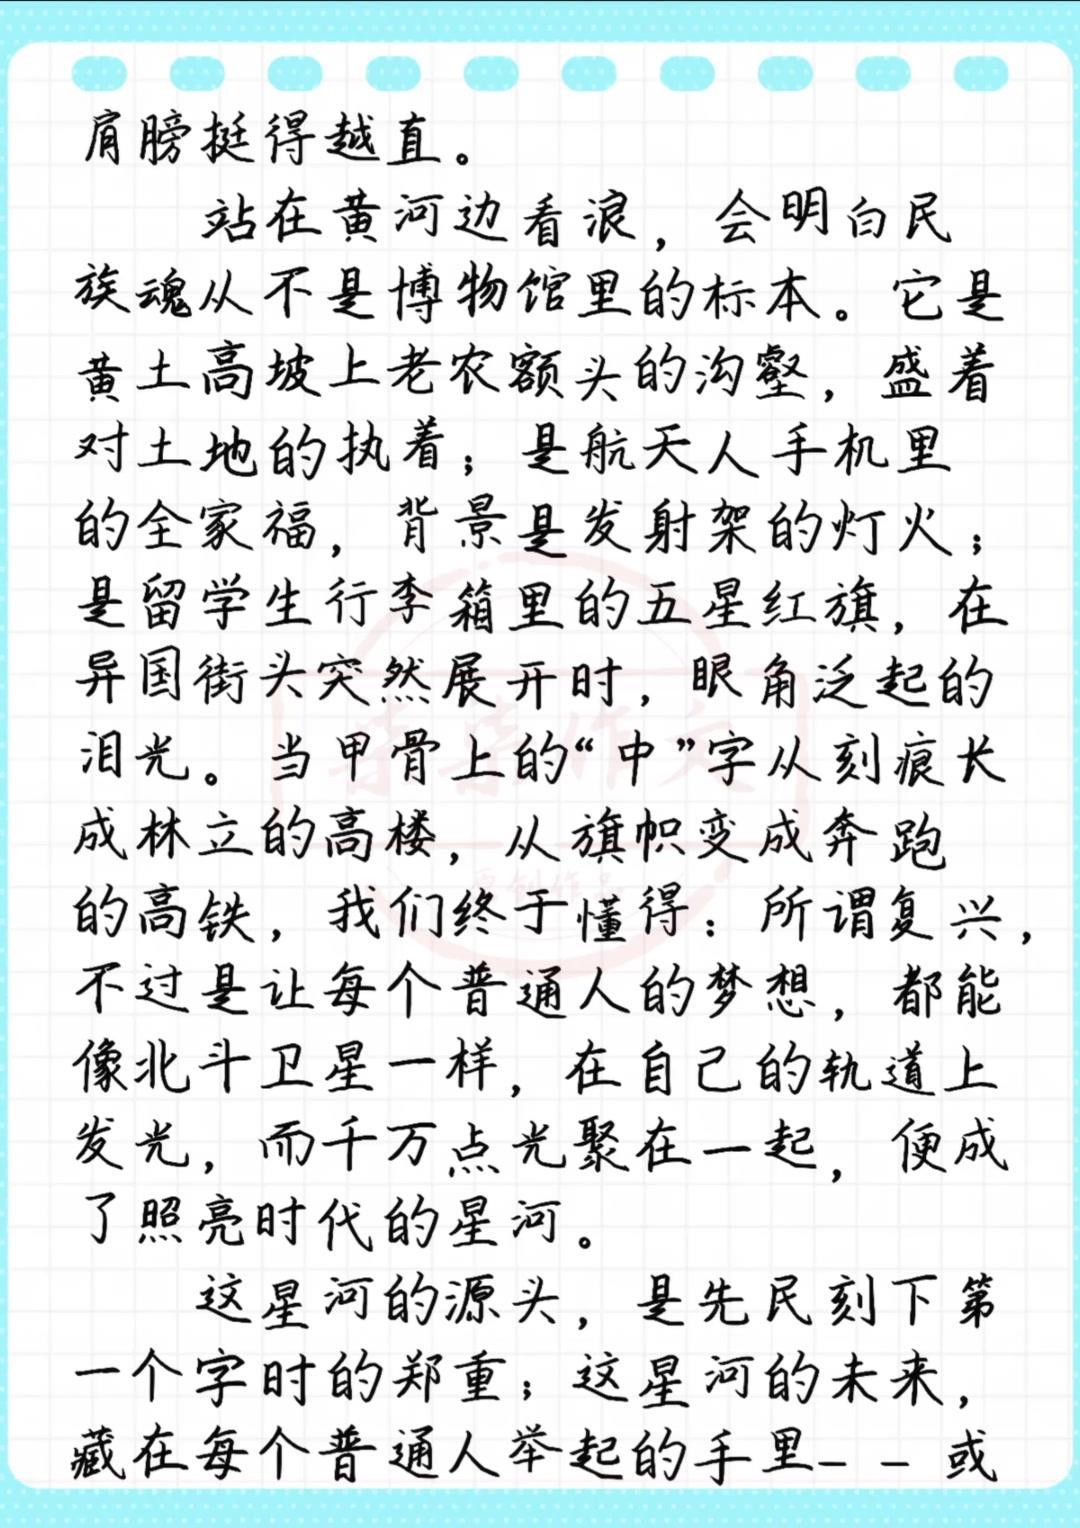 肩膀挺得越直。
站在黄河边看浪，会明白民
族魂从不是博物馆里的标本。它是
黄土高坡上老农额头的沟壑，盛着
对土地的执着；是航天人手机里
的全家福，背景是发射架的灯火；
是留学生行李箱里的五星红旗，在
异国街头突然展开时，眼角泛起的
泪光。当甲骨上的“中”字从刻痕长
成林立的高楼，从旗帜变成奔跑
的高铁，我们终于懂得：所谓复兴，
不过是让每个普通人的梦想，都能
像北斗卫星一样，在自己的轨道上
发光，而千万点光聚在一起，便成
了照亮时代的星河。
这星河的源头，是先民刻下第
一个字时的郑重；这星河的未来，
藏在每个普通人举起的手里——或
原创作品